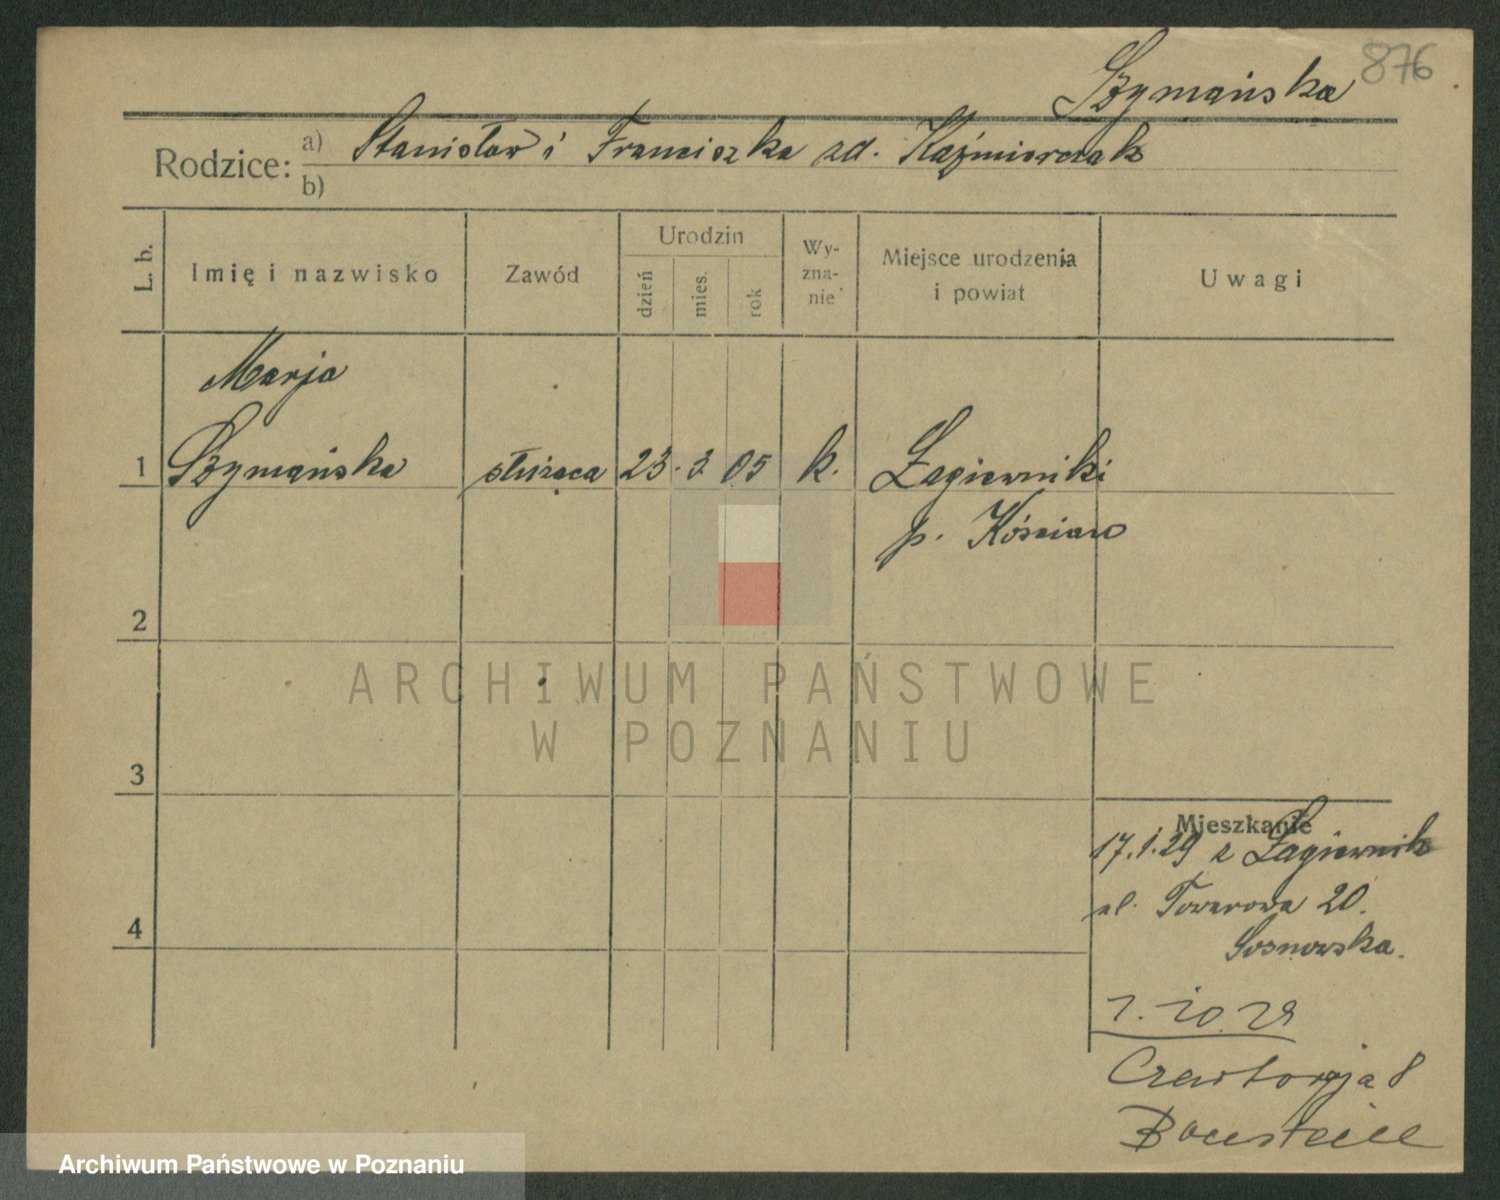 876
Szymańska
Rodzice: a) Stanisław i Franciszka zd. Kaźmierczak
b)
L. b. Imię i nazwisko Zawód Urodzin dzień mies. rok Wy-zna-nie Miejsce urodzenia i powiat Uwagi
Marja
1 Szymańska służąca 23. 3. 05 k. Łagiewniki
p. Kościan
2
ARCHIWUM PAŃSTWOWE
W POZNANIU
3
Mieszkanie
17.1.29 z Łagiewnik
ul. Towarowa 20.
Sosnowska.
1.10.29
8
4
Archiwum Państwowe w Poznaniu